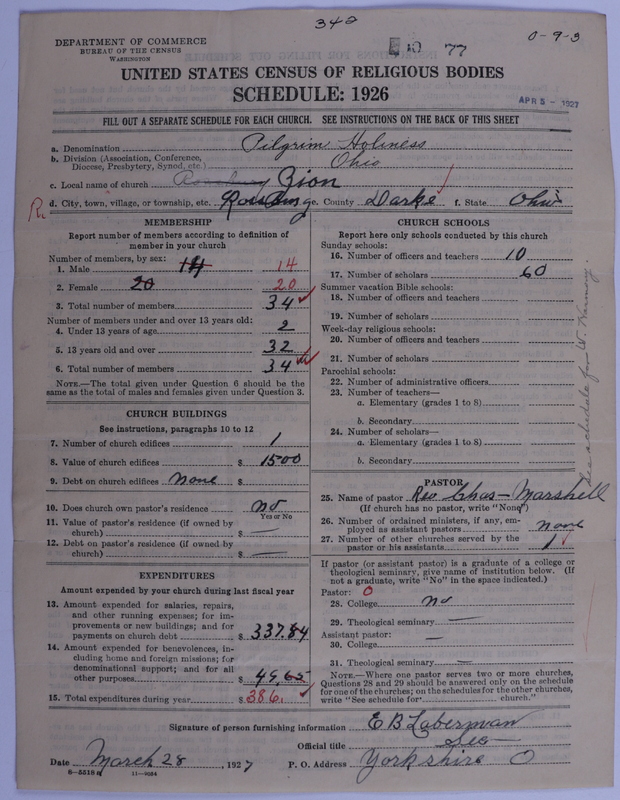 342
DEPARTMENT OF COMMERCE
BUREAU OF THE CENSUS
WASHINGTON
10 77
0-9-3
UNITED STATES CENSUS OF RELIGIOUS BODIES
SCHEDULE: 1926
APR 5 - 1927
FILL OUT A SEPARATE SCHEDULE FOR EACH CHURCH. SEE INSTRUCTIONS ON THE BACK OF THIS SHEET
a. Denomination Pilgrim Holiness
b. Division (Association, Conference, Diocese, Presbytery, Synod, etc.) Ohio
c. Local name of church Zion
R.
d. City, town, village, or township, etc. Rossburg e. County Darke f. State Ohio
MEMBERSHIP
Report number of members according to definition of member in your church
Number of members, by sex:
1. Male 14 14
2. Female 20 20
3. Total number of members 34
Number of members under and over 13 years old:
4. Under 13 years of age 2
5. 13 years old and over 32
6. Total number of members 34
NOTE.—The total given under Question 6 should be the same as the total of males and females given under Question 3.
CHURCH BUILDINGS
See instructions, paragraphs 10 to 12
7. Number of church edifices 1
8. Value of church edifices $ 1500
9. Debt on church edifices none $
10. Does church own pastor's residence no
Yes or No
11. Value of pastor's residence (if owned by church) $ —
12. Debt on pastor's residence (if owned by church) $ —
EXPENDITURES
Amount expended by your church during last fiscal year
13. Amount expended for salaries, repairs, and other running expenses; for improvements or new buildings; and for payments on church debt $ 337.84
14. Amount expended for benevolences, including home and foreign missions; for denominational support; and for all other purposes $ 49.65
15. Total expenditures during year $ 386.
CHURCH SCHOOLS
Report here only schools conducted by this church
Sunday schools:
16. Number of officers and teachers 10
17. Number of scholars 60
Summer vacation Bible schools:
18. Number of officers and teachers
19. Number of scholars
Week-day religious schools:
20. Number of officers and teachers
21. Number of scholars
Parochial schools:
22. Number of administrative officers
23. Number of teachers—
a. Elementary (grades 1 to 8)
b. Secondary
24. Number of scholars—
a. Elementary (grades 1 to 8)
b. Secondary
schedule for W.
PASTOR
25. Name of pastor Rev Chas— Marshell
(If church has no pastor, write "None")
26. Number of ordained ministers, if any, employed as assistant pastors none
27. Number of other churches served by the pastor or his assistants 1
If pastor (or assistant pastor) is a graduate of a college or theological seminary, give name of institution below. (If not a graduate, write "No" in the space indicated.)
Pastor: 0
28. College no
29. Theological seminary —
Assistant pastor:
30. College —
31. Theological seminary —
NOTE.—Where one pastor serves two or more churches, Questions 28 and 29 should be answered only on the schedule for one of the churches; on the schedules for the other churches, write "See schedule for church."
Signature of person furnishing information E B Laberman
Official title Sec
Date March 28, 1927 P. O. Address Yorkshire O
8-5518 11-9034